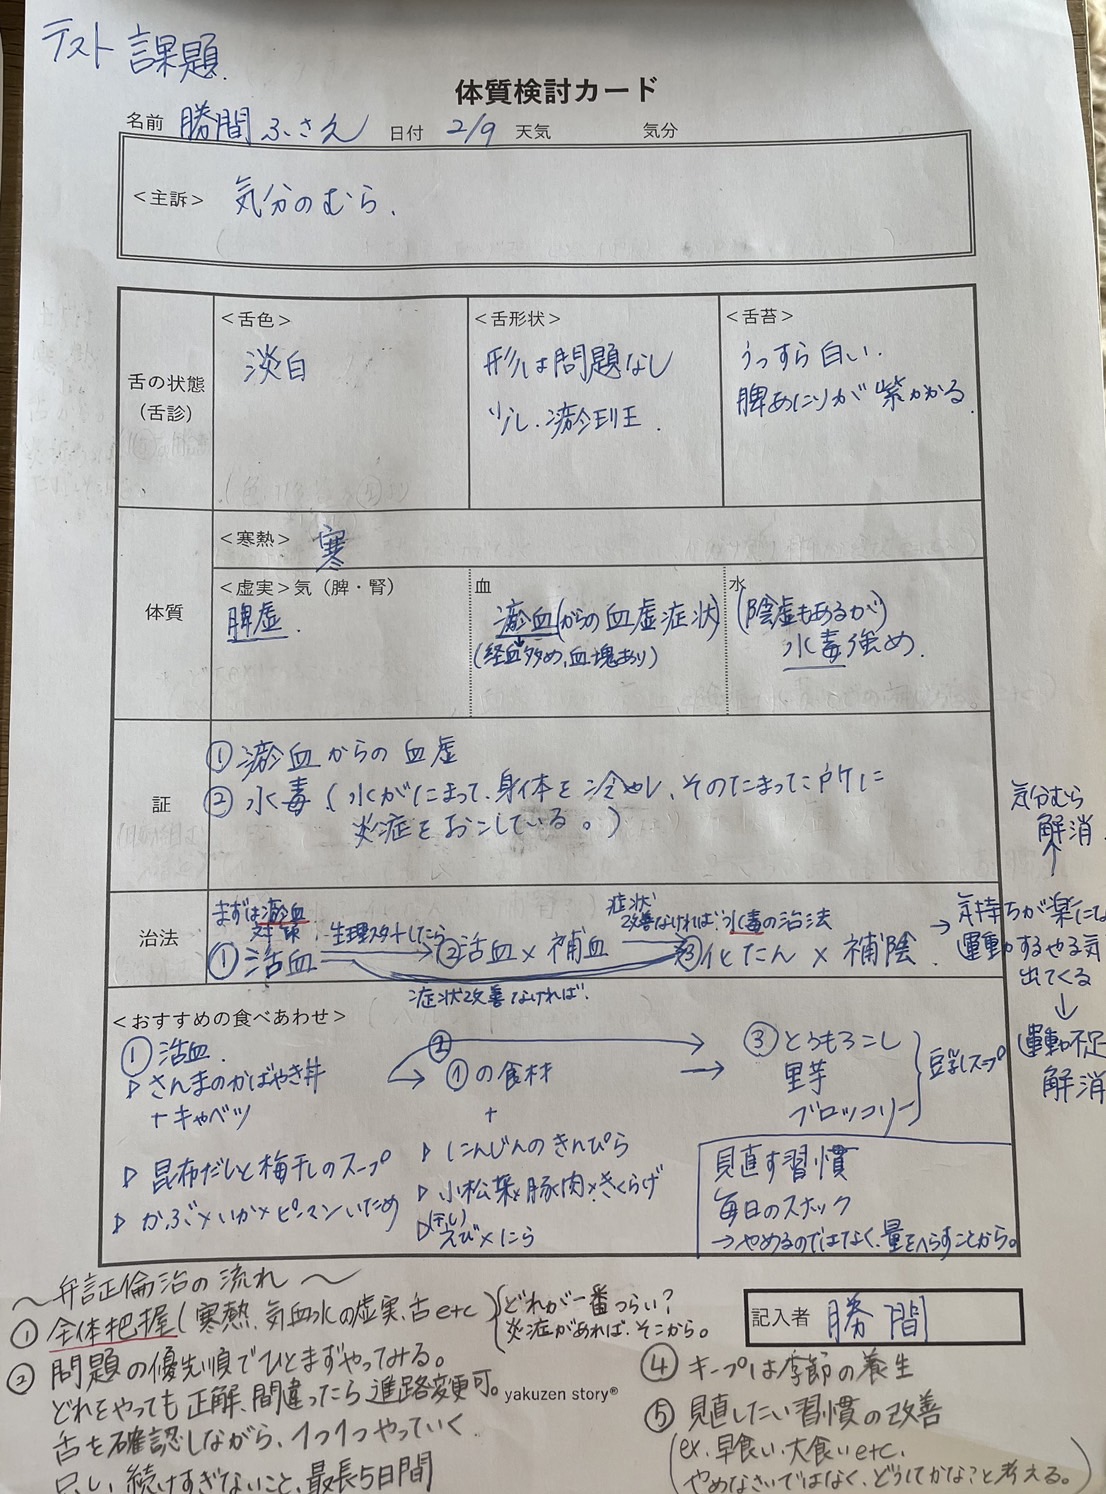 テスト 課題
体質検討カード
名前 勝間ふさえ 日付 2/9 天気 気分
<主訴> 気分のむら.
舌の状態
(舌診)
<舌色>
淡白
<舌形状>
形は問題なし
少し.瘀斑.
<舌苔>
うっすら白い.
脾あたりが紫がかる.
体質
<寒熱> 寒
<虚実>気(脾・腎)
脾虚.
血
瘀血(からの血虚症状)
(経血多め,血塊あり)
水
(陰虚もあるが)
水毒強め.
証
① 瘀血からの血虚
② 水毒(水がたまって、身体を冷やし、そのたまった所に
炎症をおこしている。)
治法
まずは瘀血
生理スタートしたら
症状
改善なければ 水毒の治法
①活血
②活血×補血
③化たん×補陰.
症状改善なければ.
→ 気持ちが楽にな
運動するやる気
出てくる
気分むら
解消.
運動不足
解消
<おすすめの食べあわせ>
① 活血.
▷さんまのかばやき丼
+キャベツ
▷昆布だしと梅干しのスープ
▷かぶ×いか×ピーマンいため
②
①の食材
+
▷にんじんのきんぴら
▷小松菜×豚肉×きくらげ
▷(干し)えび×にら
③とうもろこし
里芋
ブロッコリー
豆乳スープ
見直す習慣
毎日のスナック
→やめるのではなく、量をへらすことから。
~弁証倫治の流れ~
① 全体把握(寒熱、気血水の虚実、舌etc)
どれが一番つらい?
炎症があれば、そこから。
② 問題の優先順でひとまずやってみる。
どれをやっても正解、間違ったら進路変更可。
舌を確認しながら、1つ1つやっていく
続けすぎないこと、最長5日間
記入者 勝間
yakuzen story®
④ キープは季節の養生
⑤ 見直したい習慣の改善
(ex.早食い、大食いetc.
やめなさいではなく、どうしてかな?と考える。)